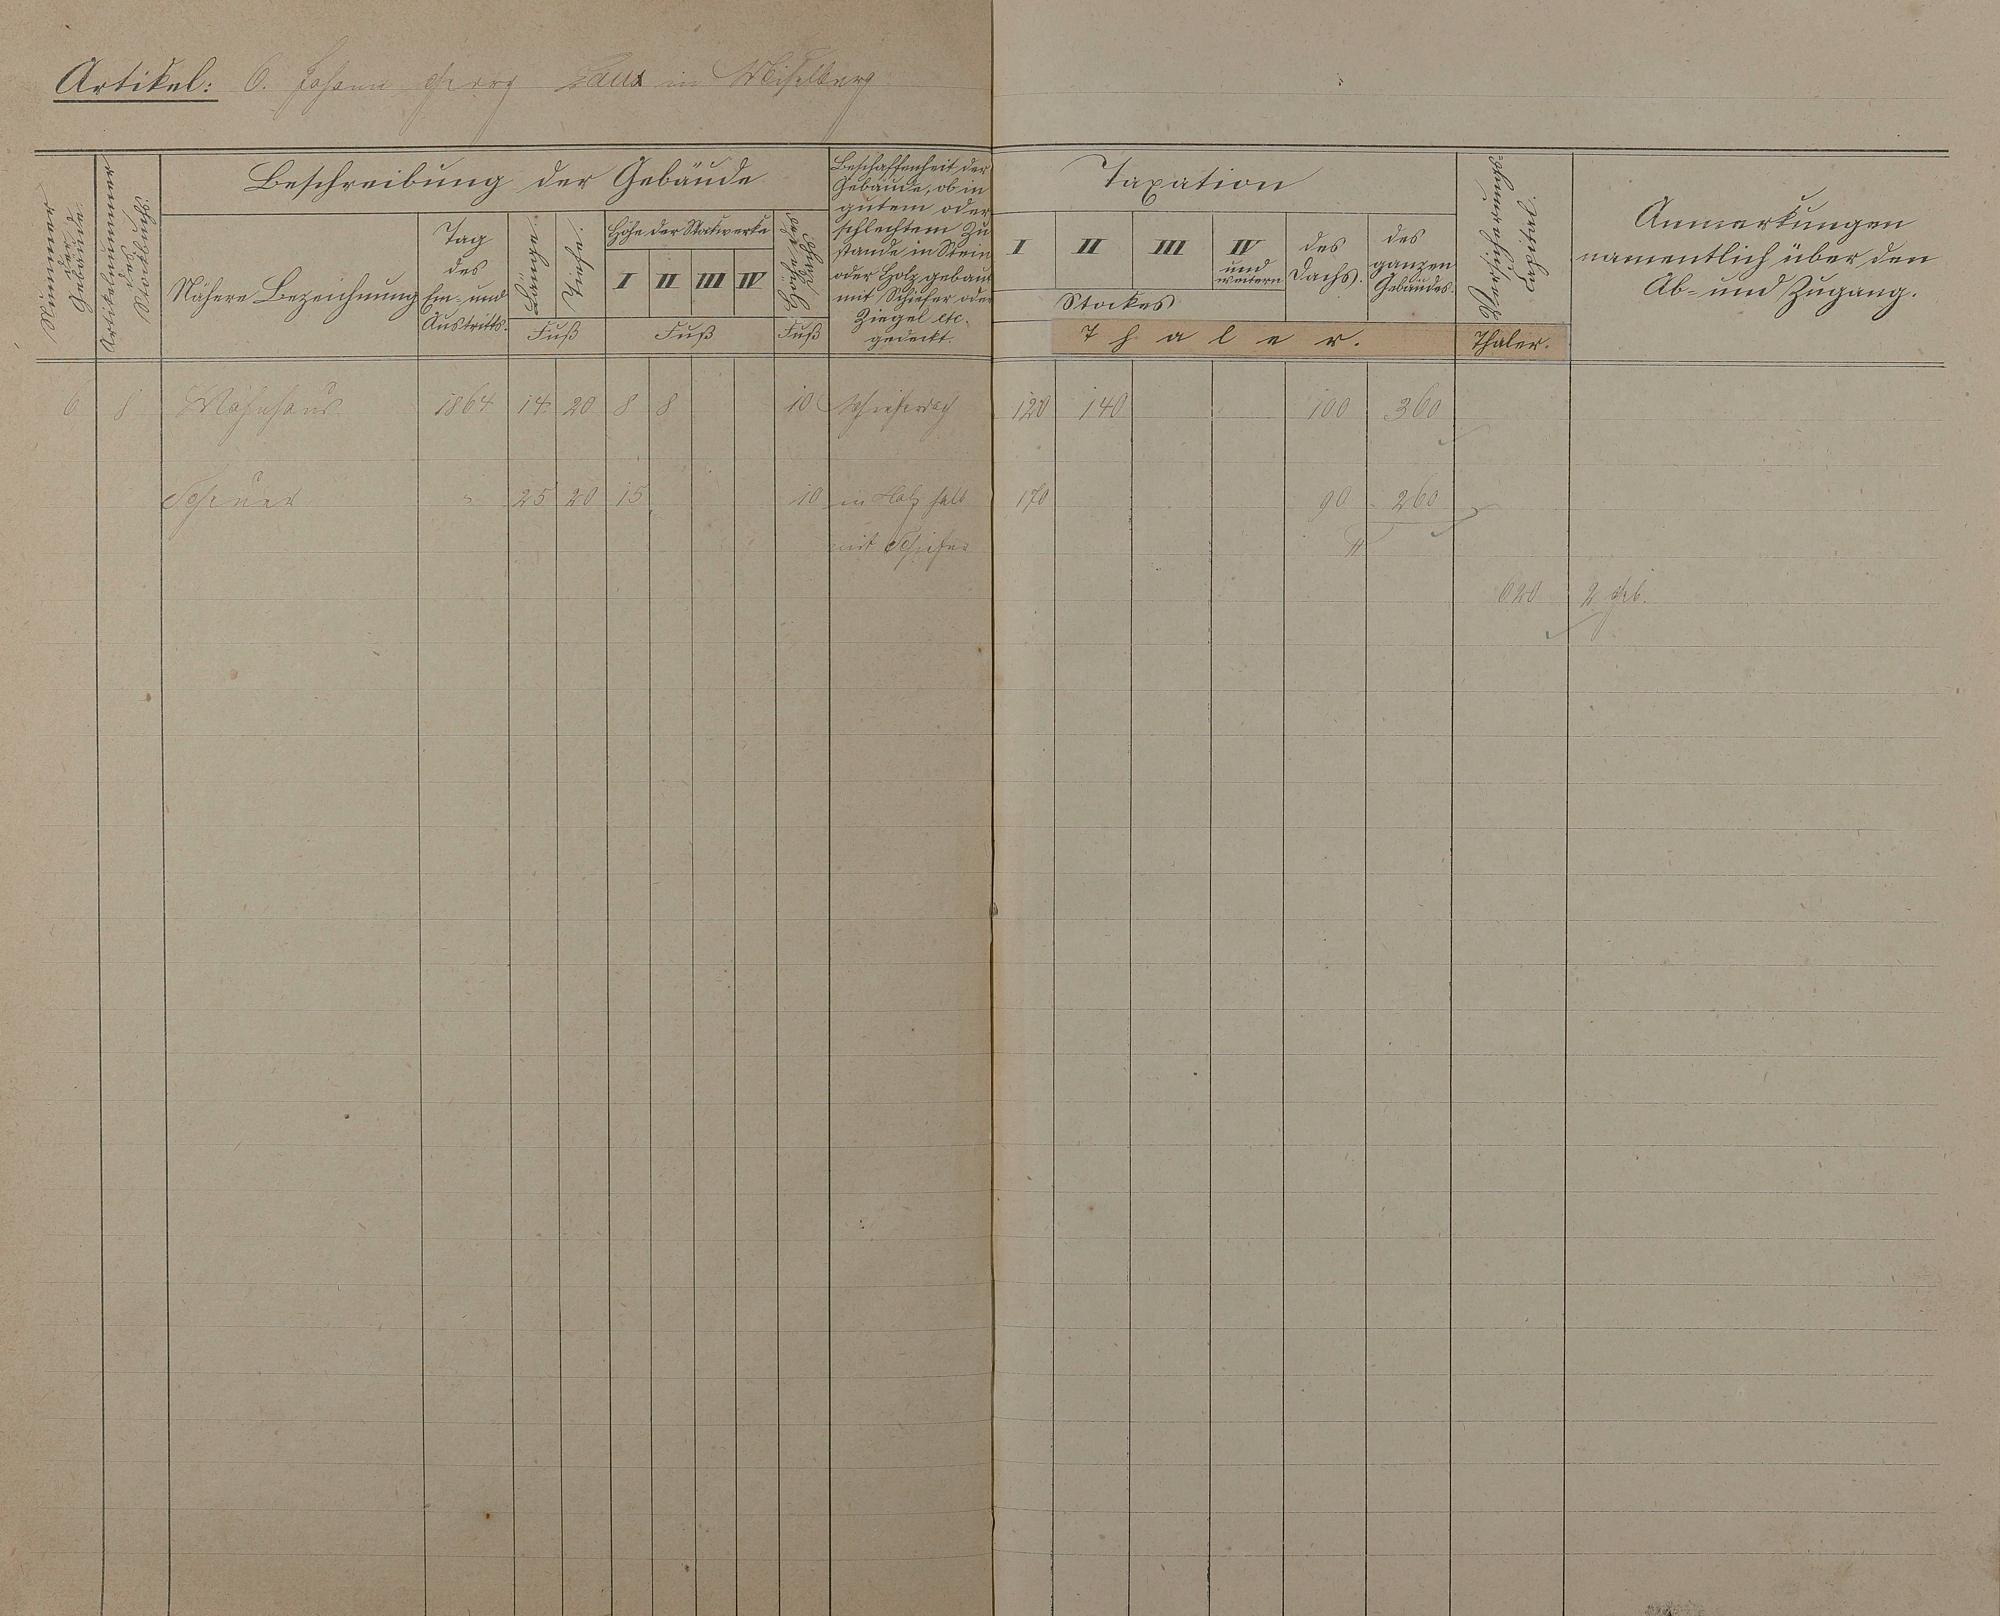 Artikel: 6. Johann Georg Laux in Miselberg
Nummer der Gebäude.
Artikelnummer des Stockbuchs.
Beschreibung der Gebäude
Nähere Bezeichnung
Tag des Ein- und Austritts.
Länge.
Tiefe.
Fuß
Höhe der Stockwerke
I II III IV
Fuß
Höhe des Dachs
Fuß
Beschaffenheit der
Gebäude, ob in
gutem oder
schlechtem Zu
stande in Stein
oder Holz gebaut
mit Schiefer oder
Ziegel etc.
gedeckt.
Taxation
I II III IV und weitern
Stockes
des Dachs.
des ganzen Gebäudes.
Thaler.
Versicherungs-Capital.
Thaler.
Anmerkungen
namentlich über den
Ab- und Zugang.
6 8 Wohnhaus 1864 14 20 8 8 10 Schieferdach 120 140 100 360
Scheuer " 25 20 15 10 in Holz halb 170 90 260
mit Schiefer
620 2 Geb.